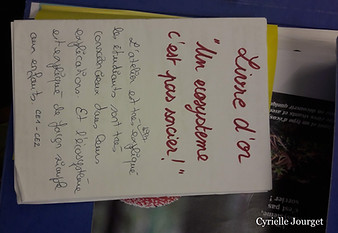 Livre d'or
"Un ecosystème
c'est pas sorcier!"
L'atelier est très expliqué
les étudiants sont très
consciencieux dans leurs
explications. Et l'écosystème
est expliqué de façon simple
aux enfants. CE1-CE2
Cyrielle Jourget